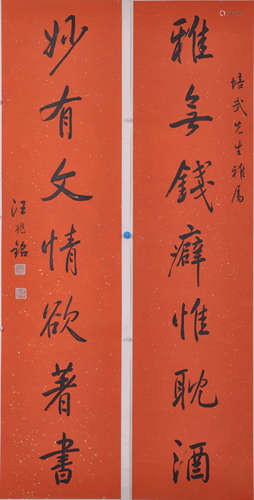 培武先生雅属
雅無錢癖惟耽酒
妙有文情欲著書
汪兆銘